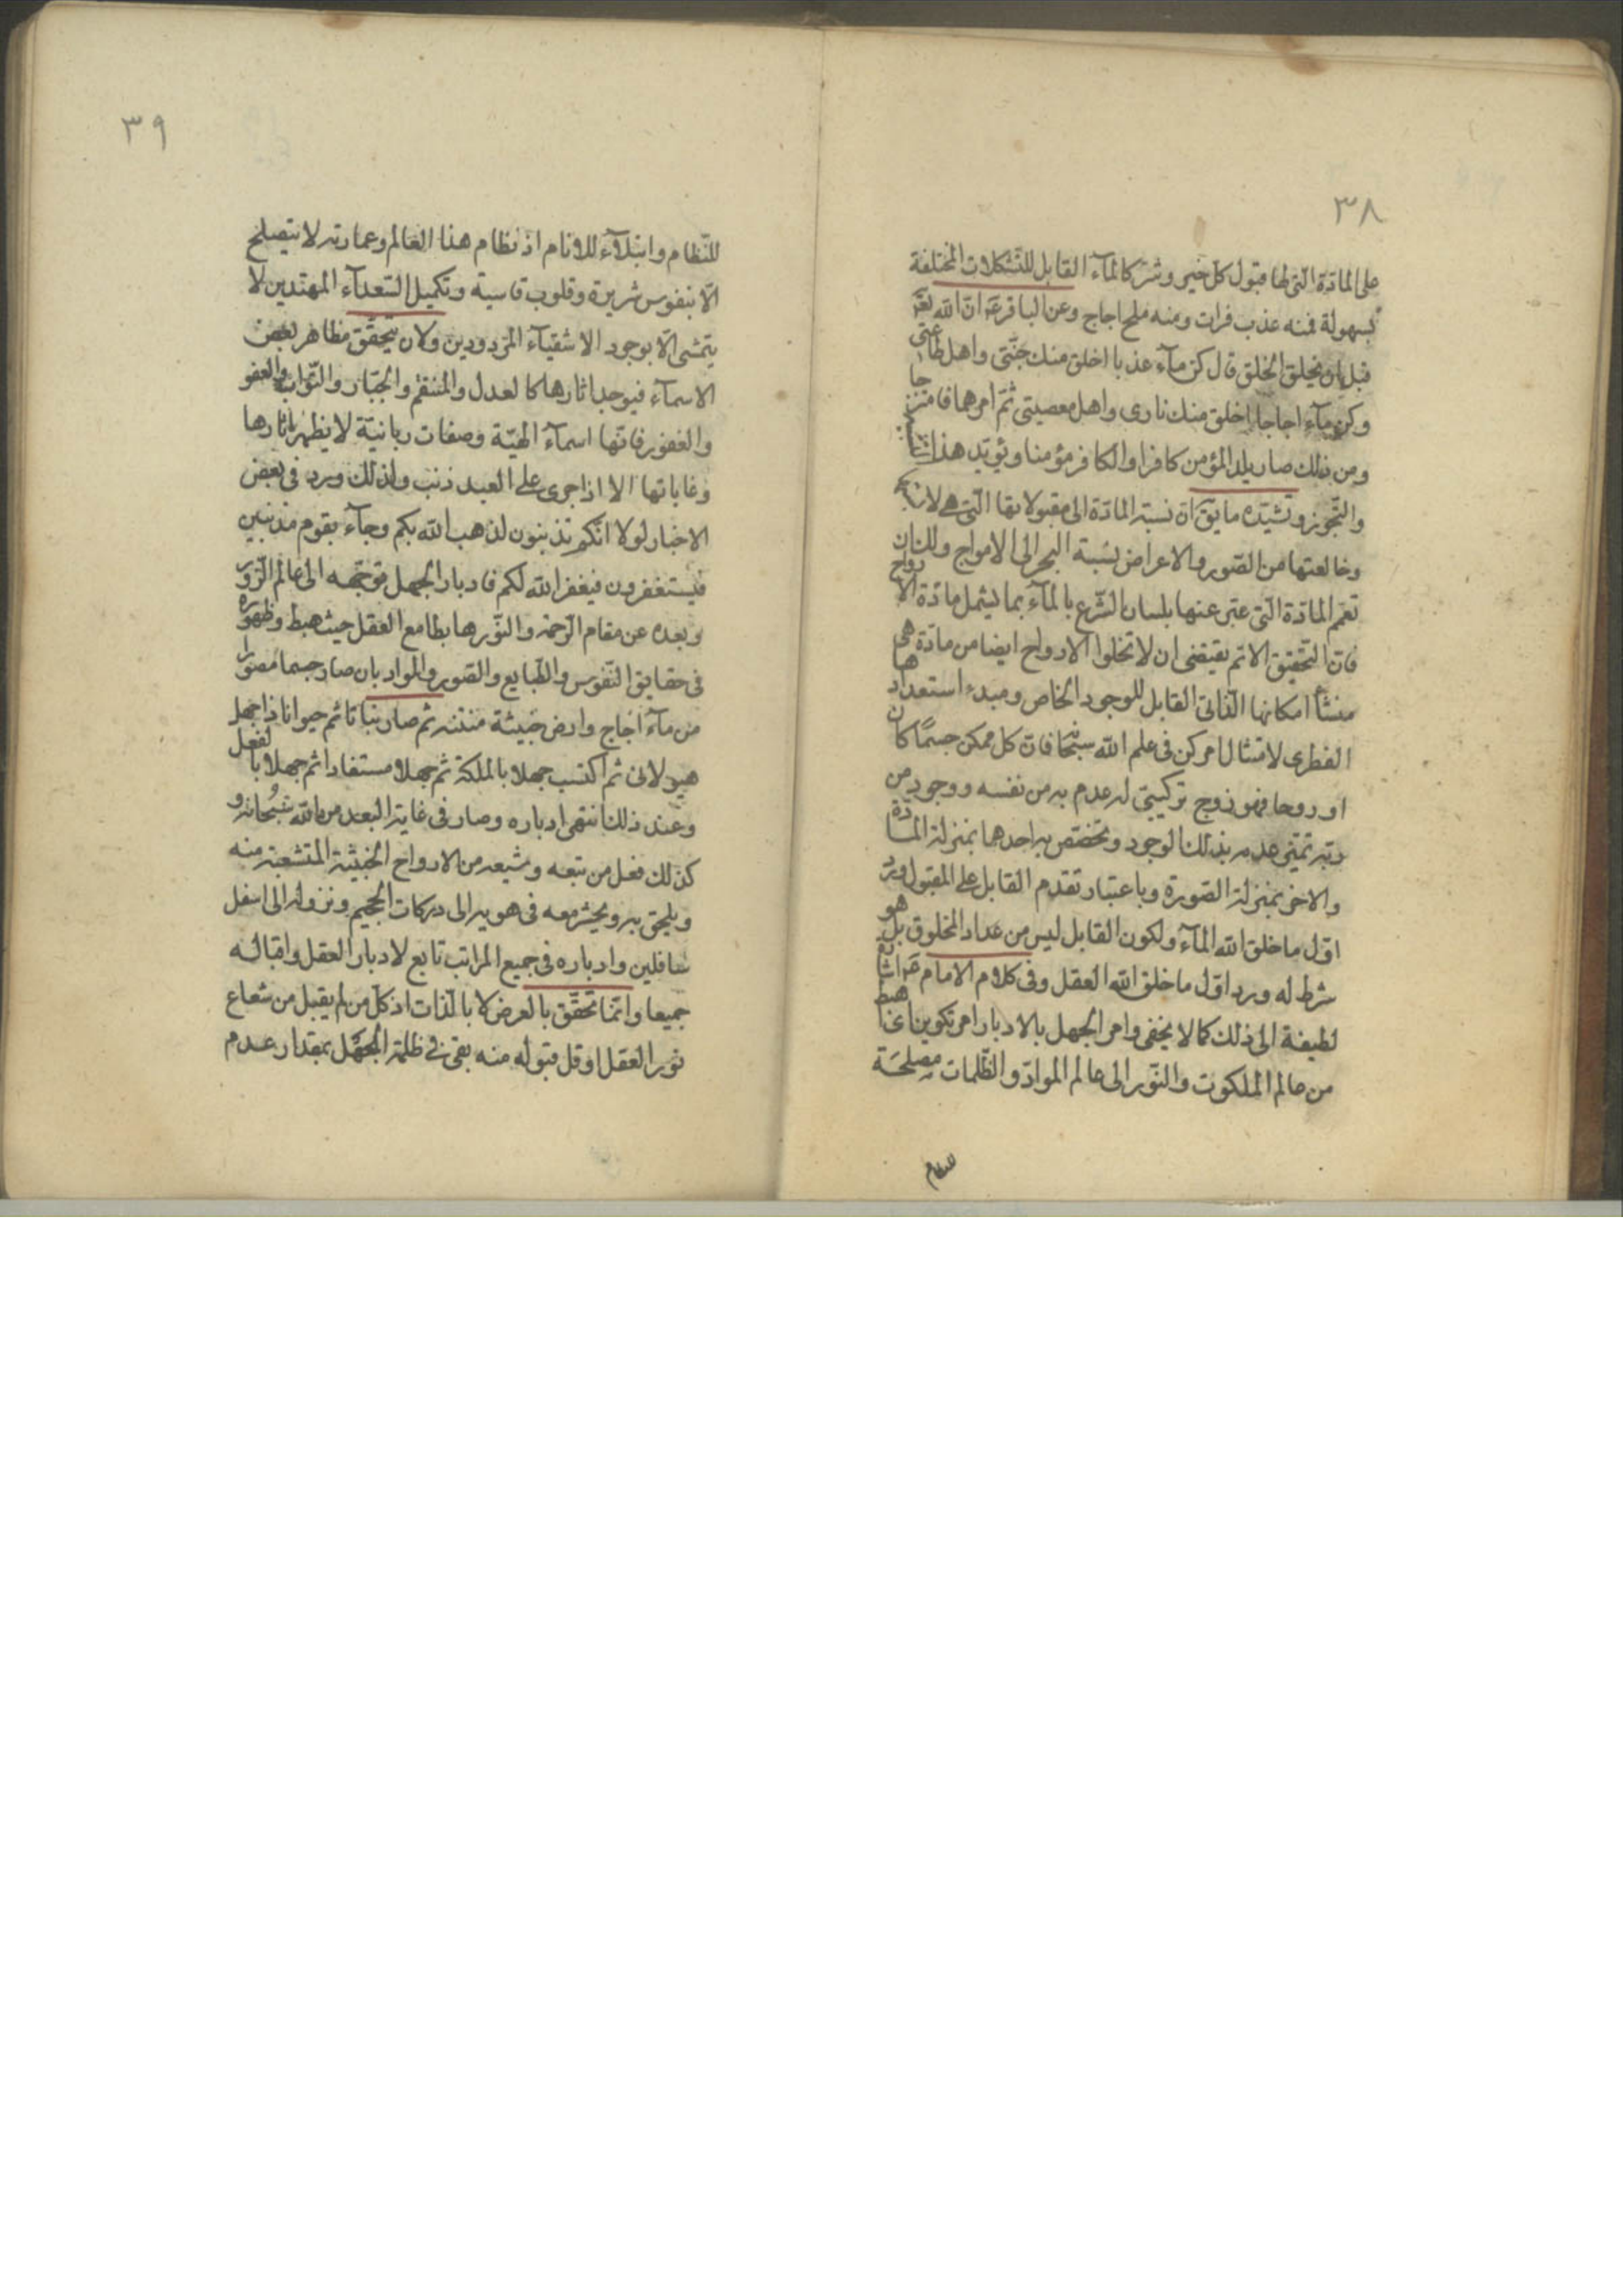 ٣٨
على المادّة الّتى لها قبول كل خير وشرّ كالمآء القابل للتّشكلات المختلفة
بسهولة فمنه عذب فرات ومنه ملح اجاج وعن الباقر ع انّ الله تع
قبل ان يخلق الخلق قال كن مآء عذبا اخلق منك جنّتى واهل طاعتى
وكن مآء اجاجا اخلق منك نارى واهل معصيتى ثمّ امرهما فامتزجا
ومن ذلك صار يلد المؤمن كافرا والكافر مؤمنا ويؤيّد هذا
والتّجوز وتشيّده ما يق انّ نسبة المادّة الى مقبولاتها الّتى هى
وخالعتها من الصّور والاعراض نسبة البحر الى الامواج ولك ان
تعمّم المادّة الّتى عبّر عنها بلسان الشّرع بالمآء بما يشمل مادّة الارواح
فانّ التّحقيق الاتم يقتضى ان لا تخلوا الارواح ايضا من مادّة هى
منشأ امكانها الذّاتى القابل للوجود الخاص ومبدء استعدادها
الفطرى لامتثال امر كن فى علم الله سبحا فانّ كل ممكن جسمًا كان
او روحا فهو زوج تركيبىّ له عدم به من نفسه ووجود من
ربّه تمّى عدمه بذلك الوجود وتخصّص به احدهما بمنزلة المادّة
والاخر بمنزلة الصّورة وباعتبار تقدّم القابل على المقبول ورد
اوّل ما خلق الله المآء ولكون القابل ليس من عداد المخلوق بل هو
شرط له ورد اوّل ما خلق الله العقل وفى كلام الامام ع اشارة
لطيفة الى ذلك كما لا يخفى وامر الجهل بالادبار امر تكوين اى اهبط
من عالم الملكوت والنّور الى عالم الموادّ والظّلمات مصلحَة
للنظام
٣٩
للنّظام وابتلآء للانام اذ نظام هذا العالم وعمارته لا ينصلح
الّا بنفوس شريرة وقلوب قاسية وتكميل السّعدآء المهتدين لا
يتمشى الّا بوجود الاشقيآء المردودين ولان يتحقّق مظاهر بعض
الاسمآء فيوجد اثارها كالعدل والمنتقم والجبّار والتّواب والعفو
والغفور فانّها اسمآء الهيّة وصفات ربانيّة لا يظهر اثارها
وغاياتها الا اذا جرى على العبد ذنب ولذلك ورد فى بعض
الاخبار لولا انّكم تذنبون لذهب الله بكم وجآء بقوم مذنبين
فيستغفرون فيغفر الله لكم فادبار الجهل توجّهه الى عالم الزّور
وبعده عن مقام الرّحمة والنّور هابطا مع العقل حيث هبط وظهوره
فى حقايق النّفوس والطّبايع والصّور والمواد بان صار جسما مصورا
من مآء اجاج وارض خبيثة منتنه ثم صار نباتا ثم حيوانا ذا جهل
هيولانى ثم اكتسب جهلا بالملكة ثم جهلا مستفادا ثم جهلا بالفعل
وعند ذلك انتهى ادباره وصار فى غاية البعد من الله سُبحانه و
كذلك فعل من تبعه وشيعه من الارواح الخبيثة المتشعبة منه
ويلحق به ويحشر معه فى هويه الى دركات الجحيم ونزوله الى اسفل
سافلين وادباره فى جميع المراتب تابع لادبار العقل واقباله
جميعا وانّما تحقّق بالعرض لا بالذّات اذ كلّ من لم يقبل من شعاع
نور العقل او قل قبوله منه بقى فى ظلمة الجهل بمقدار عدم